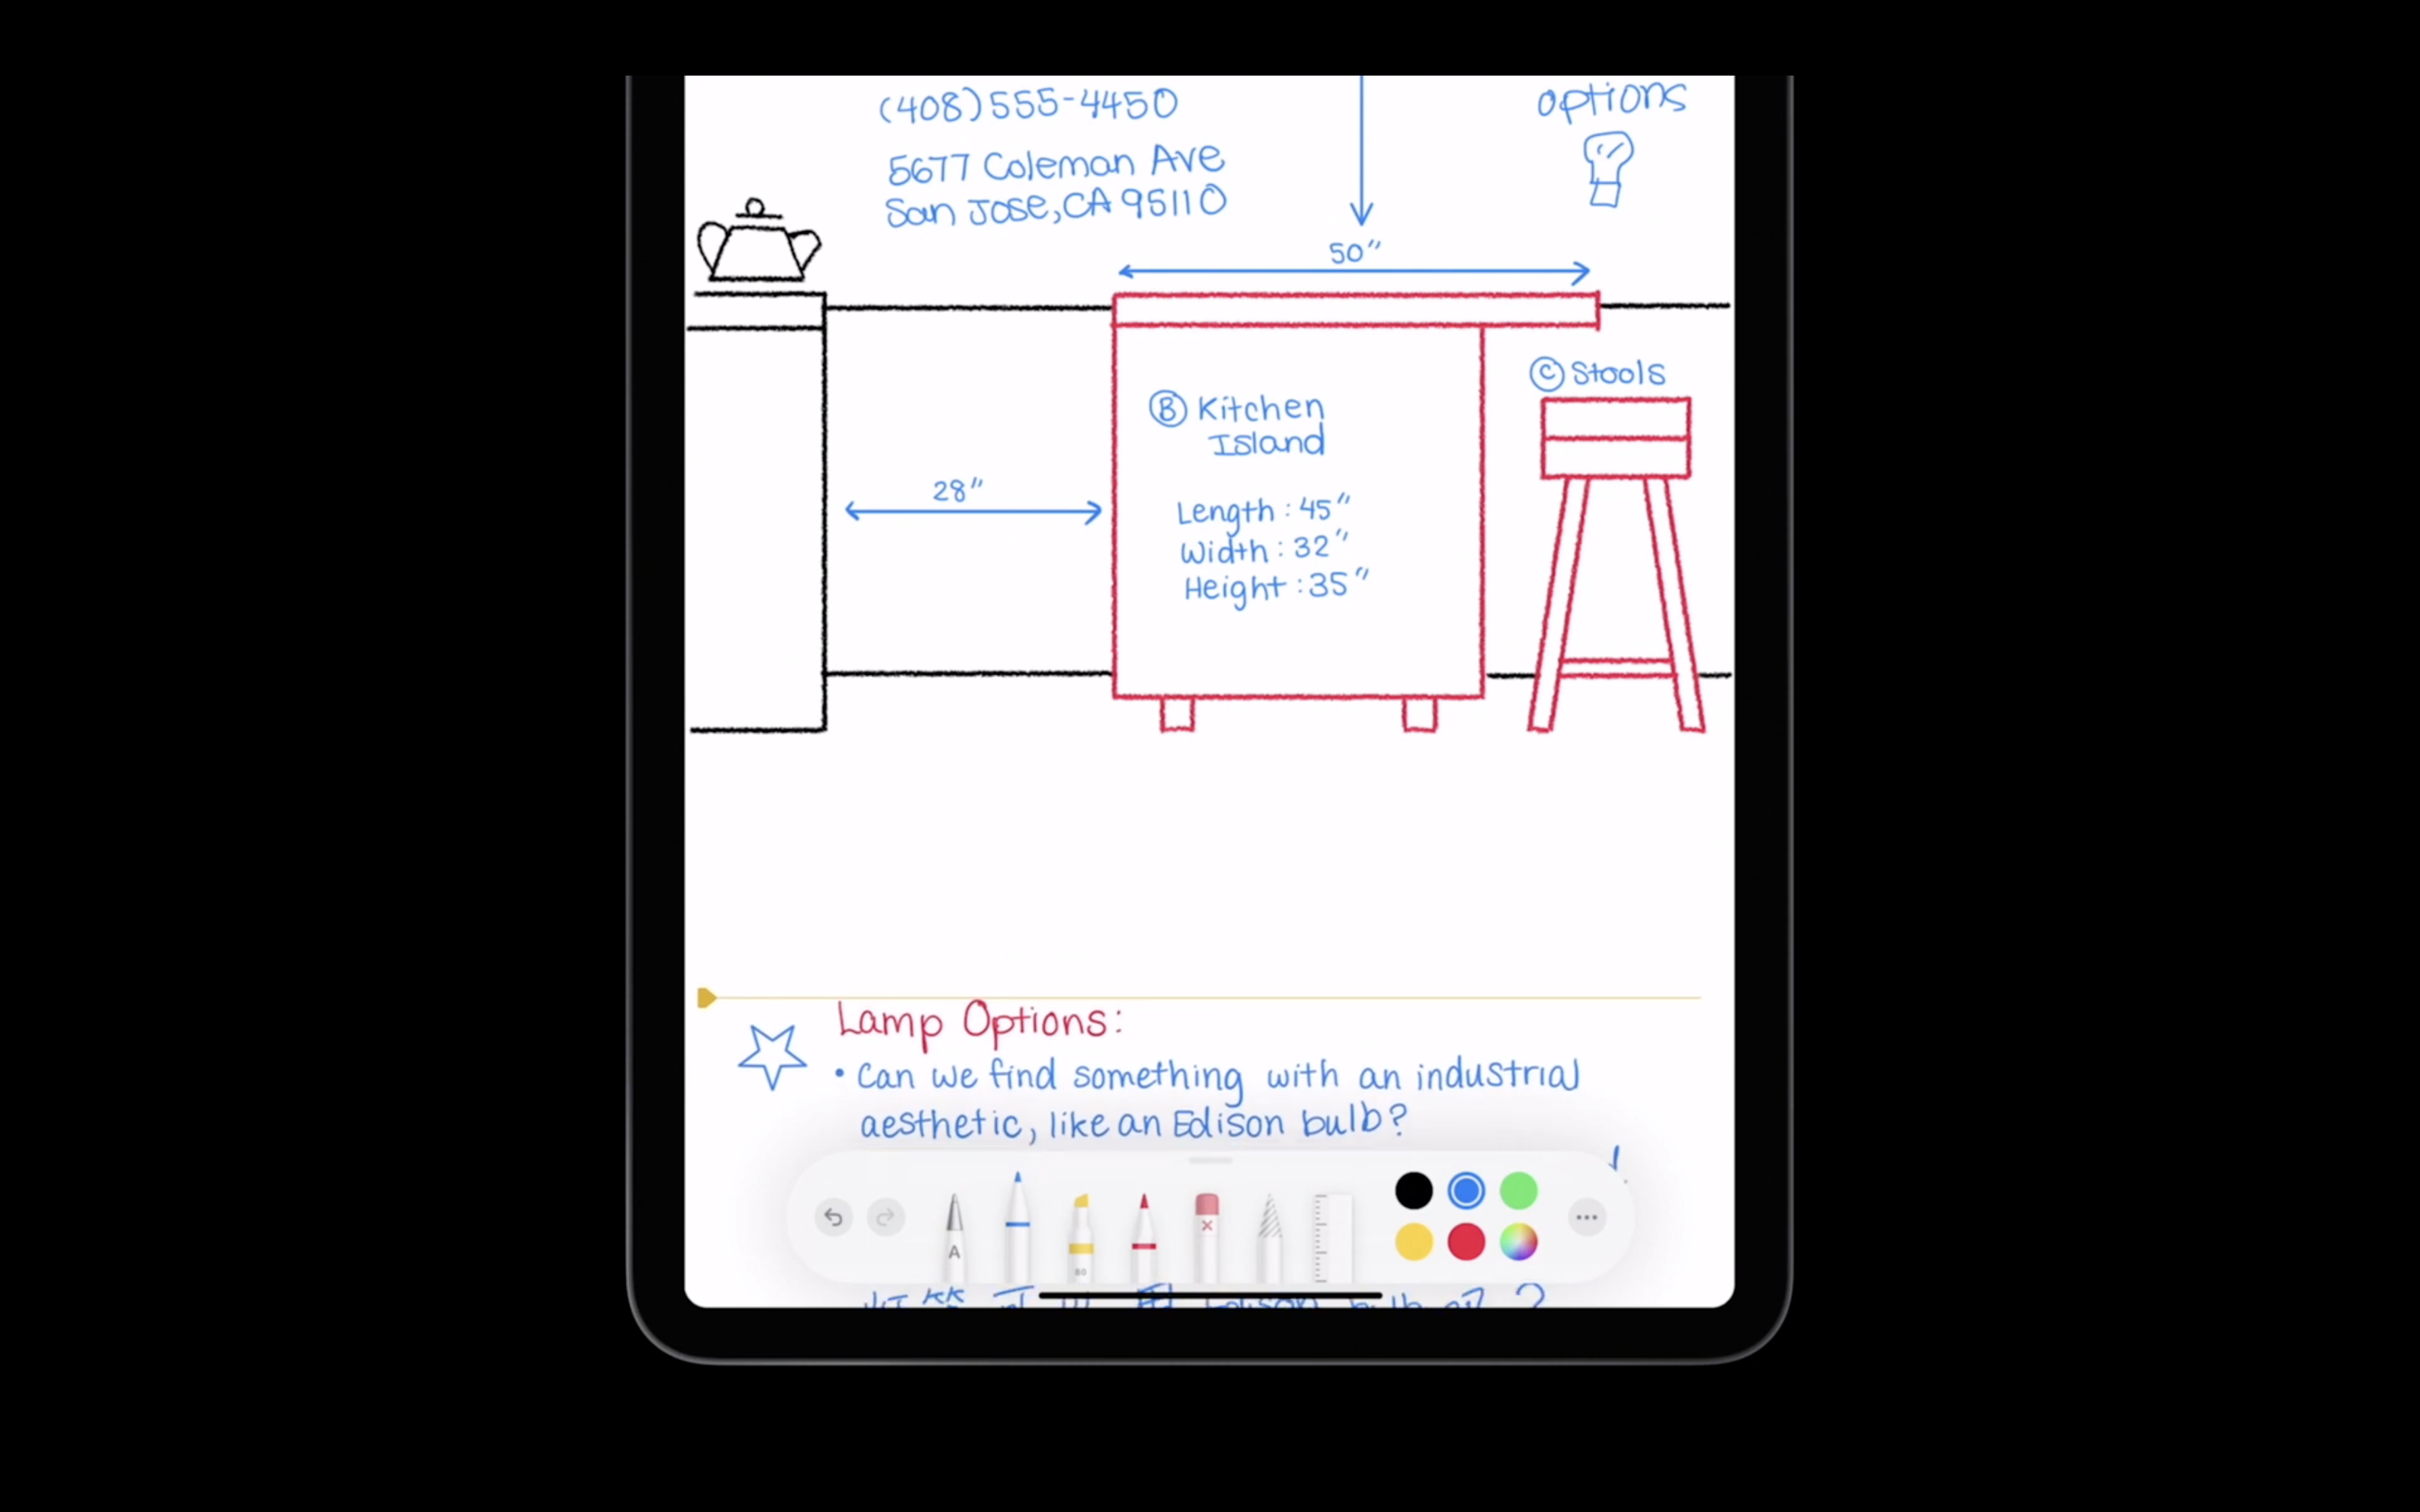 (408) 555-4450
options
5677 Coleman Ave
San Jose, CA 95110
50"
Ⓒ Stools
Ⓑ Kitchen
Island
28"
Length : 45"
Width : 32"
Height : 35"
Lamp Options:
• Can we find something with an industrial
aesthetic, like an Edison bulb?
A
80
Edison bulb